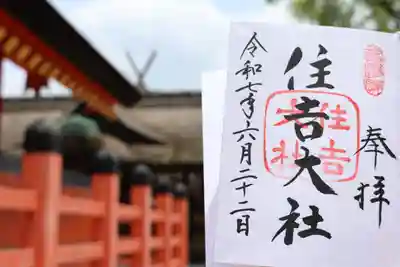 奉拝
住吉大社
令和七年六月二十二日
住吉
大社